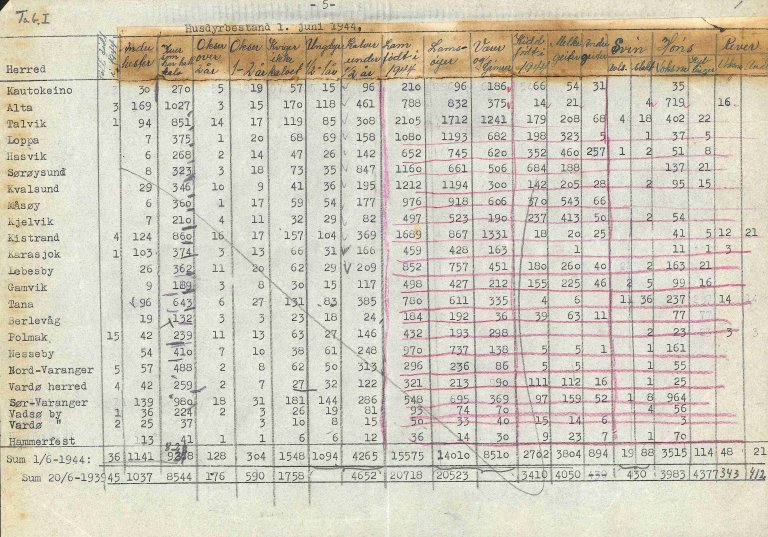 Tab. I
- 5 -
Husdyrbestand 1. juni 1944.
Herred Andre hester Kuer som har hatt kalv Okser over 2 år Okser 1-2 år Kviger ikke kalvet Ungdyr ½-1 år Kalver under ½ år Lam født i 1944 Lams-øyer Værer og Gimrer Født i 1944 Melke geiter Andre geiter Svin Høns Voksne Rever
Kautokeino 30 270 5 19 57 15 96 210 96 186 66 54 31 35
Alta 3 169 1027 3 15 170 118 461 788 832 375 14 21 4 719 16
Talvik 1 94 851 14 17 119 85 308 2105 1712 1241 179 208 68 4 18 402 22
Loppa 7 375 1 20 68 69 158 1080 1193 682 198 323 5 1 37 5
Hasvik 6 268 2 14 47 26 142 652 745 620 352 460 257 1 2 51 8
Sørøysund 8 323 3 18 73 35 847 1160 661 506 684 188 137 21
Kvalsund 29 346 10 9 41 36 195 1212 1194 300 142 205 28 2 95 15
Måsøy 6 360 1 17 59 54 177 976 918 606 370 543 66
Kjelvik 7 210 4 11 32 29 82 497 523 190 237 413 50 2 54
Kistrand 4 124 860 16 17 157 104 369 1689 867 1331 18 20 25 41 5 12 21
Karasjok 1 103 374 3 13 66 31 166 459 428 163 1 11 1 3
Lebesby 26 362 11 20 62 29 209 852 757 451 180 260 40 2 163 21
Gamvik 9 189 3 8 30 15 117 498 427 212 155 225 46 2 5 99 16
Tana 96 643 6 27 131 83 385 780 611 335 4 6 11 36 237 14
Berlevåg 19 132 3 3 23 18 24 184 192 36 39 63 11 77
Polmak 15 42 239 11 13 63 27 146 432 193 298 2 23 3
Nesseby 54 410 7 10 38 61 248 970 737 138 5 5 1 1 161
Nord-Varanger 5 57 488 2 8 62 50 313 296 236 86 5 5 1 55
Vardø herred 4 42 259 2 7 27 32 122 321 213 90 111 112 16 1 25
Sør-Varanger 139 980 18 31 181 144 286 548 695 369 97 159 52 1 8 964
Vadsø by 1 36 224 2 3 26 19 81 93 74 70 4 56
Vardø " 2 25 37 3 10 8 15 50 33 40 15 14 6 3
Hammerfest 13 41 1 1 6 6 12 36 14 30 9 23 7 1 70
Sum 1/6-1944: 36 1141 128 304 1548 1094 4265 15575 14010 8510 2702 3804 894 19 88 3515 114 48 21
Sum 20/6-1939 45 1037 8544 176 590 1758 4652 20718 20523 3410 4050 430 3983 4377 343 412